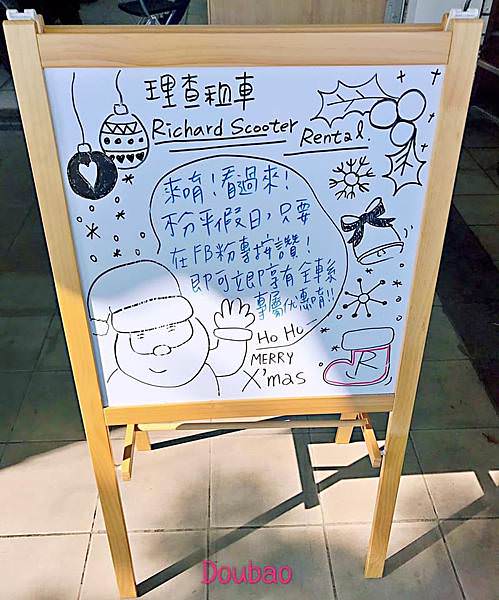 理查租車
Richard Scooter Rental.
來唷!看過來!
不分平假日,只要
在FB粉專按讚!
即可立即享有全車系
專屬优惠唷!!
Ho Ho
MERRY
X'mas
R
Doubao